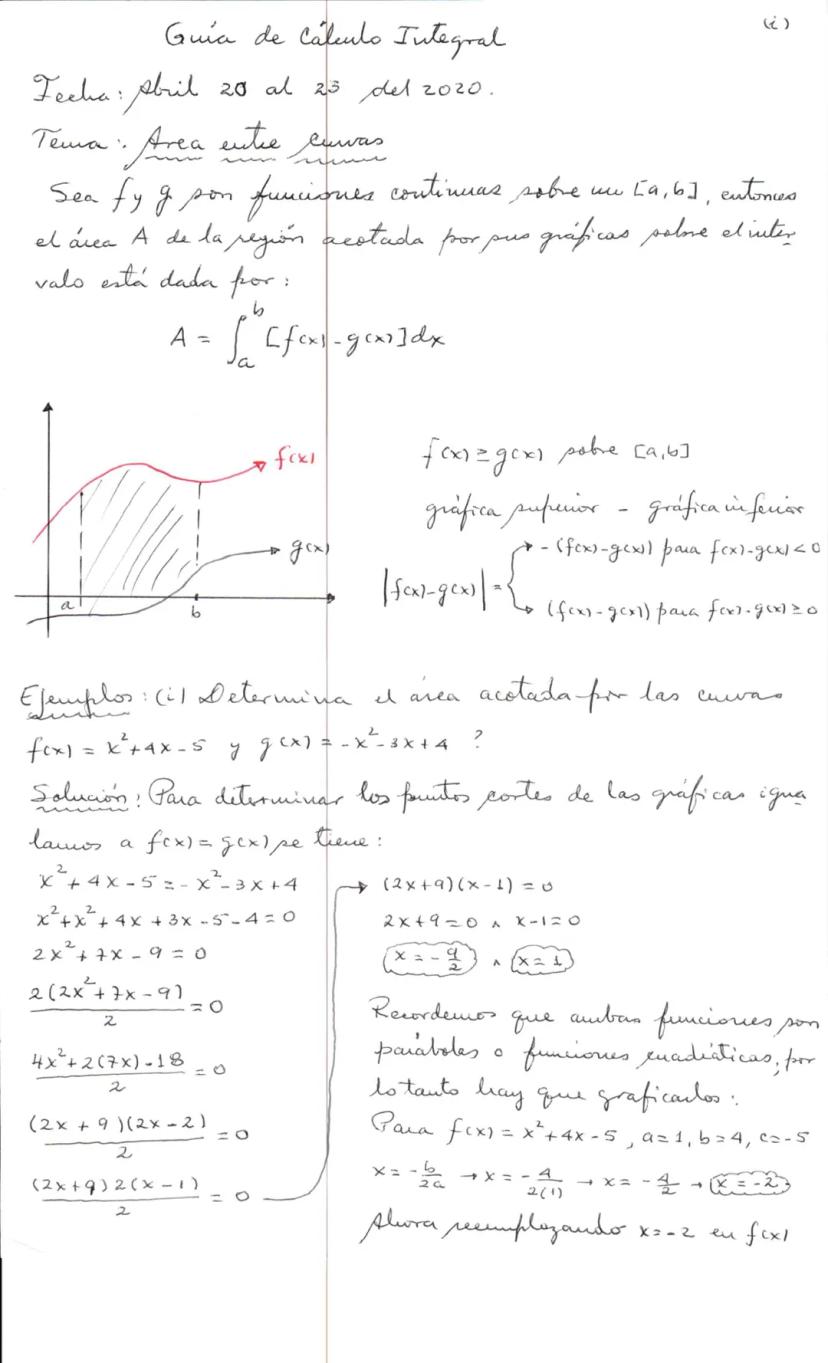 (i)
Guía de Cálculo Integral
Fecha: Abril 20 al 23 del 2020.
Tema: Area entre curvas
Sea f y g son funciones continuas sobre un [a,b], entonces
el área A de la región acotada por sus gráficas sobre el inter
valo está dada por:
A = ∫_a^b [f(x)-g(x)]dx
f(x)
g(x)
a
b
f(x) ≥ g(x) sobre [a,b]
gráfica superior - gráfica inferior
|f(x)-g(x)| = { -(f(x)-g(x)) para f(x)-g(x)<0
(f(x)-g(x)) para f(x)-g(x) ≥ 0
Ejemplos: (i) Determina el área acotada por las curvas
f(x) = x²+4x-5 y g(x) = -x²-3x+4 ?
Solución: Para determinar los puntos cortes de las gráficas igua
lamos a f(x) = g(x) se tiene:
x²+4x-5 = -x²-3x+4
x²+x²+4x+3x-5-4=0
2x²+7x-9=0
2(2x²+7x-9)/2 = 0
4x²+2(7x)-18/2 = 0
(2x+9)(2x-2)/2 = 0
(2x+9)2(x-1)/2 = 0
→ (2x+9)(x-1)=0
2x+9=0 ∧ x-1=0
x = -9/2 ∧ x=1
Recordemos que ambas funciones son
paráboles o funciones cuadráticas, por
lo tanto hay que graficarlos:
Para f(x) = x²+4x-5, a=1, b=4, c=-5
x = -b/2a → x = -4/2(1) → x = -4/2 → x = -2
Ahora reemplazando x=-2 en f(x)